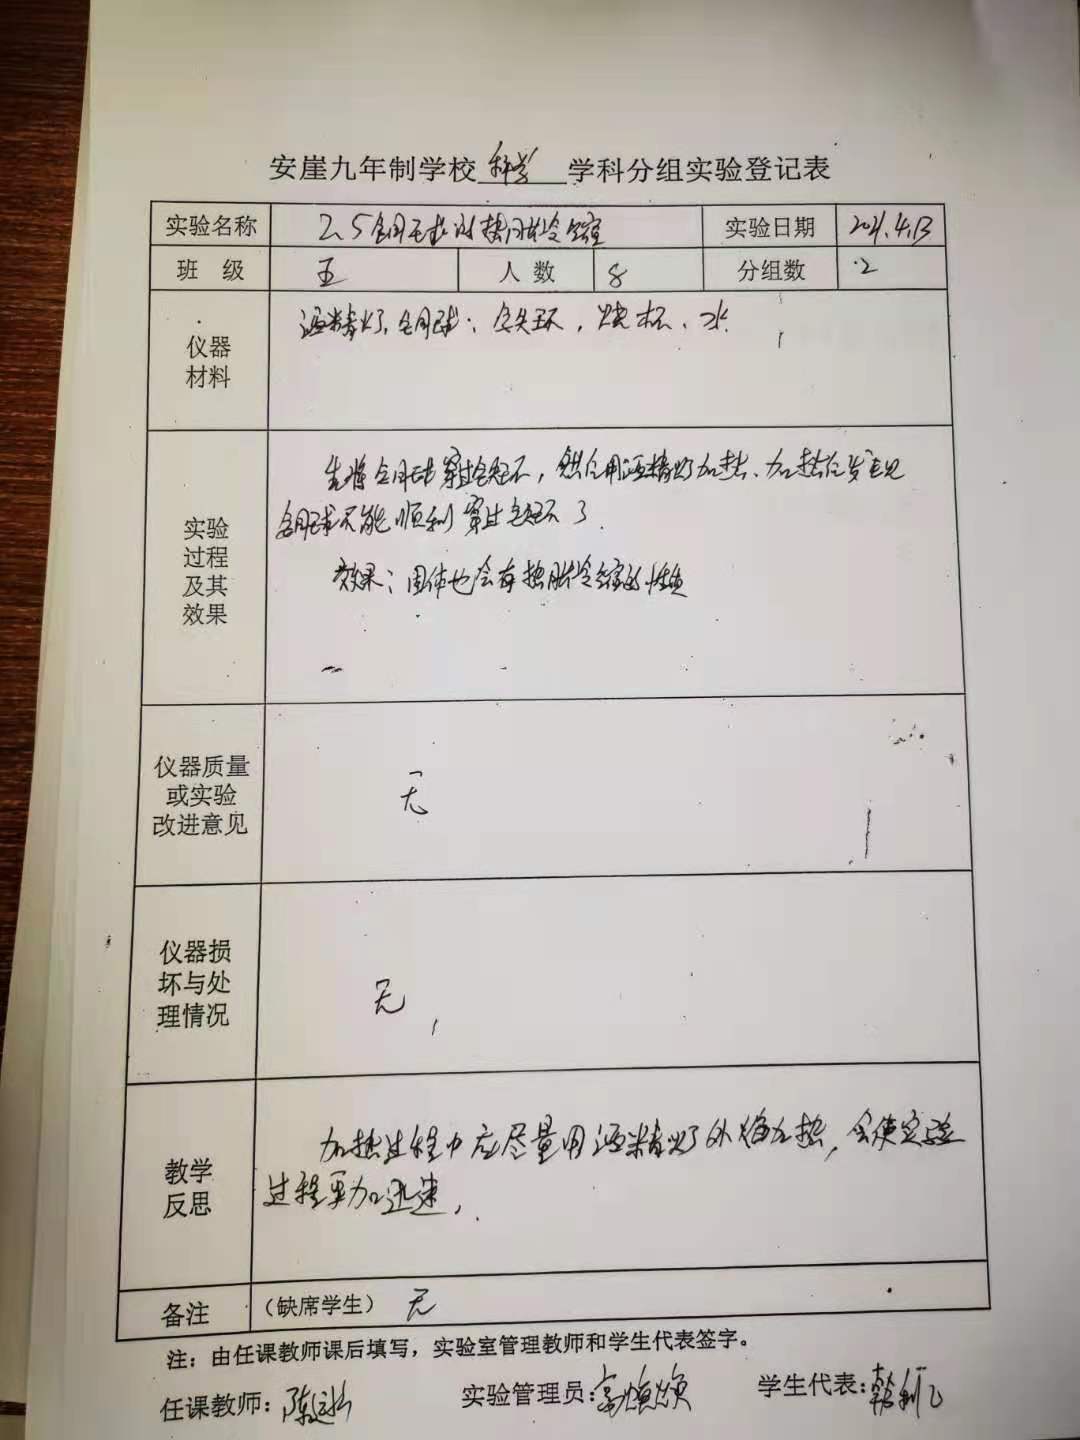 安崖九年制学校 科学 学科分组实验登记表
实验名称 2.5金属球的热胀冷缩 实验日期 2021.4.13
班 级 五 人 数 8 分组数 2
仪器材料 酒精灯、金属球、金属环、烧杯、水
实验过程及其效果
先将金属球穿过金属环,然后用酒精灯加热、加热后发现
金属球不能顺利穿过金属环了.
效果:固体也会有热胀冷缩的性质
仪器质量或实验改进意见 无
仪器损坏与处理情况 无
教学反思
加热过程中应尽量用酒精灯外焰加热,会使实验
过程更加迅速,
备注 (缺席学生) 无
注:由任课教师课后填写,实验室管理教师和学生代表签字。
任课教师:陈 实验管理员: 学生代表: